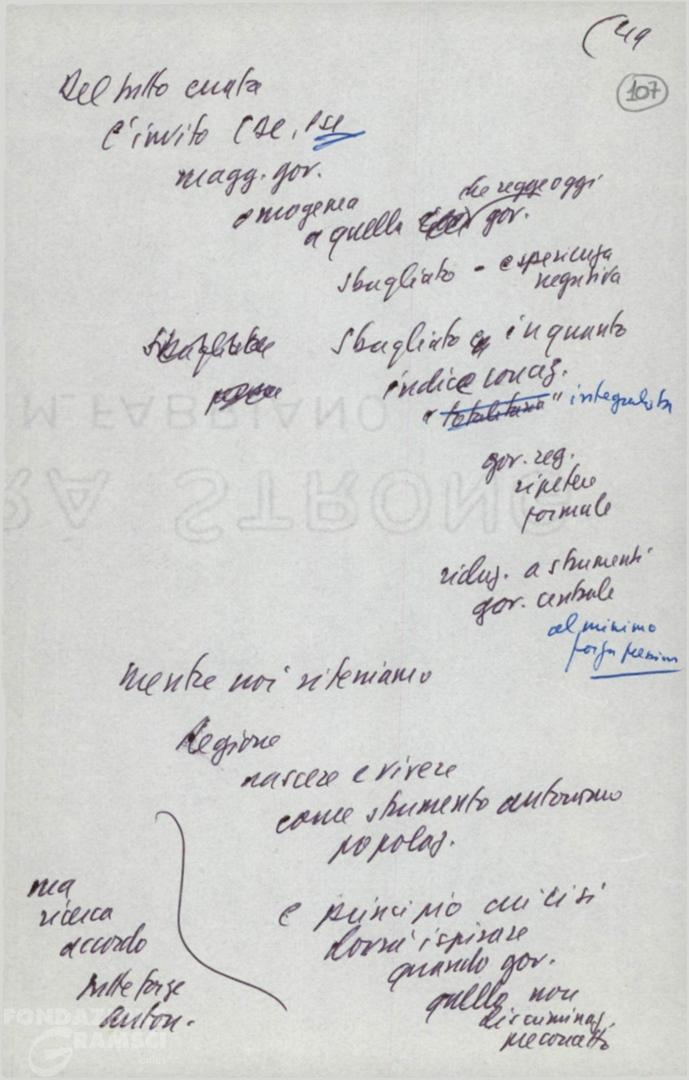 (49
107
Del tutto errata
l'invito CDC, PSI
magg. gov.
omogenea
a quella che regge oggi
gov.
sbagliato - esperienza
negativa
sbagliato in quanto
indice concez.
"totalitaria" integralista
gov. reg.
ripetere
formule
riduz. a strumenti
gov. centrale
al minimo
mentre noi riteniamo
Regione
nascere e vivere
come strumento autonomo
popolaz.
ma
ricerca
accordo
tutte forze
auton.
e principio cui ci si
dovrà ispirare
quando gov.
quello non
discriminaz.
preconcetta
M. FABRIANO
STRONG
FONDAZIONE
GRAMSCI